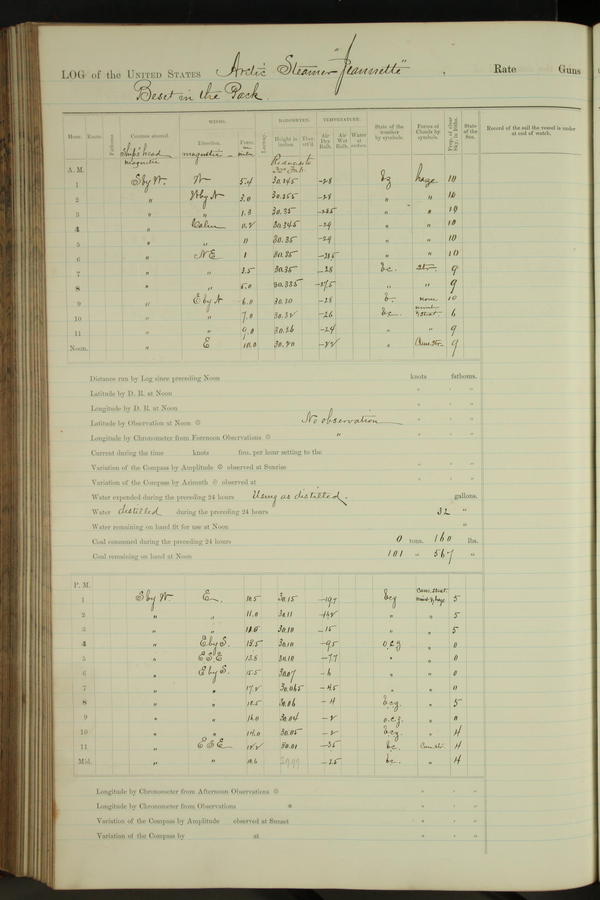 LOG of the UNITED STATES Arctic Steamer "Jeannette", Rate Guns
Beset in the Pack.
WINDS. BAROMETER. TEMPERATURE.
Hour. Knots. Fathoms. Courses steered. Direction. Force. Leeway. Height in inches. Air Dry Bulb. Air Wet Bulb. Water at surface. State of the weather by symbols. Forms of Clouds by symbols. Prop. of clear Sky, in 10ths. State of the Sea. Record of the sail the vessel is under at end of watch.
Ship's head magnetic magnetic
A. M.
1 S by W. W 5.4 30.245 -28 bz haze 10
2 " W by N 3.0 30.255 -28 " " 10
3 " " 1.3 30.35 -28.5 " " 10
4 " Calm 0.2 30.345 -29 " " 10
5 " " 0 30.35 -29 " " 10
6 " N E 1 30.35 -28.5 " " 10
7 " " 3.5 30.35 -28 bc. Str. 9
8 " " 5.0 30.335 -27.5 " " 9
9 " E by N 6.0 30.30 -28 b. None 10
10 " " 7.0 30.32 -26 6
11 " " 9.0 30.26 -24 " " 9
Noon. " E 10.0 30.20 -22 " Cum. Str. 9
Distance run by Log since preceding Noon knots fathoms.
Latitude by D. R. at Noon " ' "
Longitude by D. R. at Noon " ' "
Latitude by Observation at Noon No observation " ' "
Longitude by Chronometer from Forenoon Observations " " ' "
Current during the time knots fms. per hour setting to the
Variation of the Compass by Amplitude observed at Sunrise
Variation of the Compass by Azimuth observed at
Water expended during the preceding 24 hours Using as distilled. gallons.
Water distilled during the preceding 24 hours 32 "
Water remaining on hand fit for use at Noon "
Coal consumed during the preceding 24 hours 0 tons. 160 lbs.
Coal remaining on hand at Noon 101 " 567 "
P. M.
1 S by W E 10.5 30.15 -19.7 bcz 5
2 " " 11.0 30.11 " " 5
3 " " 30.10 -15 " " 5
4 " E by S. 13.5 30.10 -9.5 o.c.z " 0
5 " E S E 13.8 30.10 -7.7 " " 0
6 " E by S. 15.5 30.07 -6 " " 0
7 " " 17.2 30.065 -4.5 " " 0
8 " " 30.06 -4 b.c.z. " 5
9 " " 16.0 30.04 -2 o.c.z. " 0
10 " " 14.0 30.05 -2 b.c.z. " 4
11 " E S E 30.01 -3.5 bc. Cum. Str. 4
Mid. " " 29.99 -2.5 bc. " 4
Longitude by Chronometer from Afternoon Observations " ' "
Longitude by Chronometer from Observations " ' "
Variation of the Compass by Amplitude observed at Sunset " ' "
Variation of the Compass by at " ' "